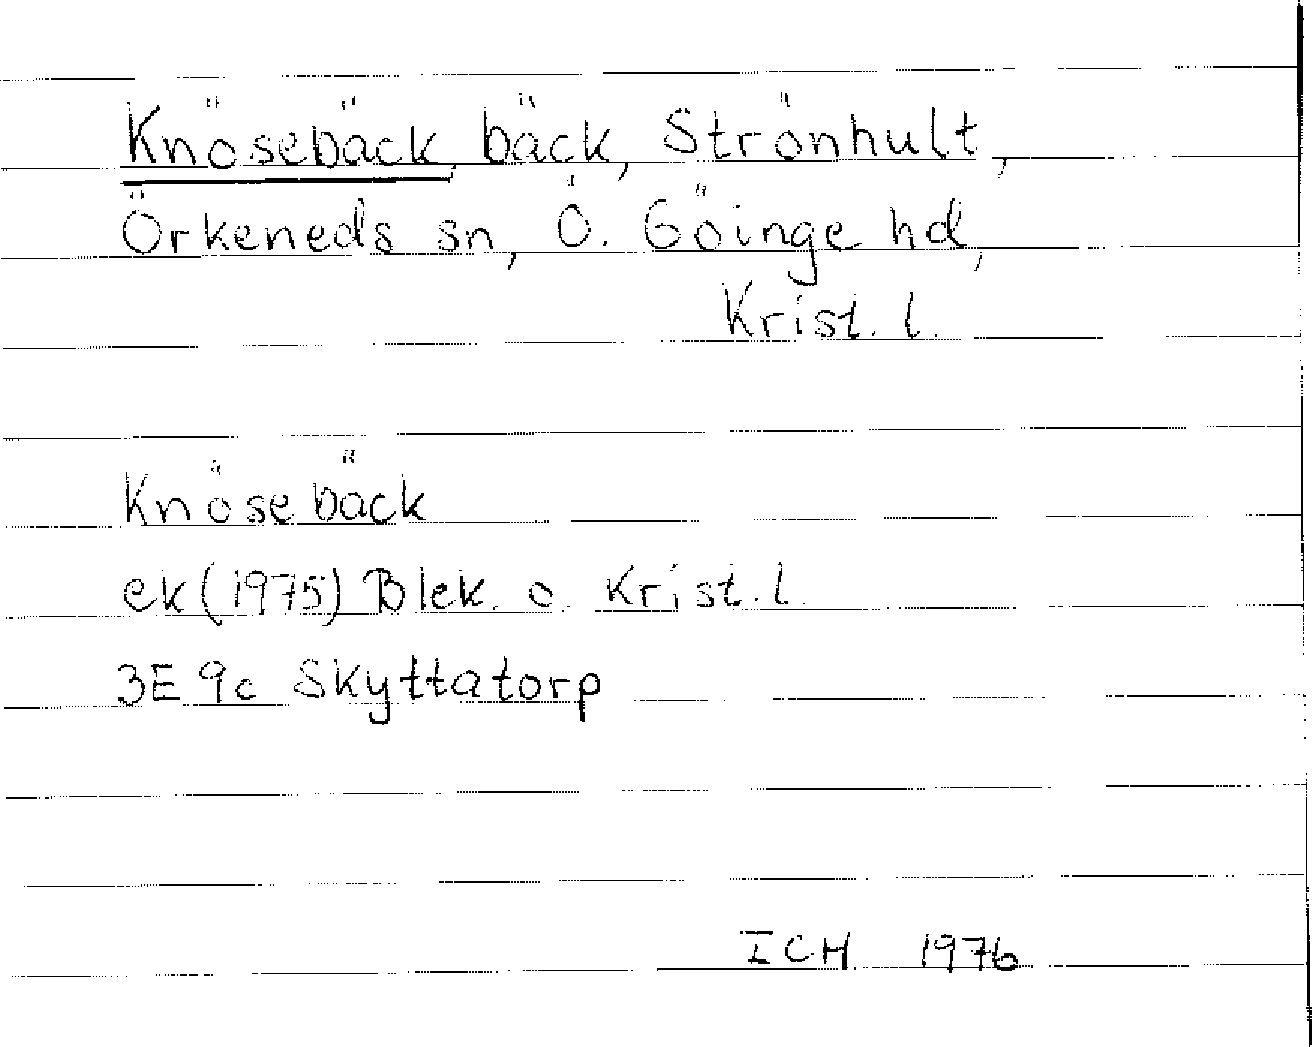 Knösebäck, bäck, Strönhult,
Örkeneds sn, Ö. Göinge hd,
Krist. l.
Knösebäck
ek (1975) Blek. o. Krist. l.
3E 9c Skyttatorp
ICH 1976